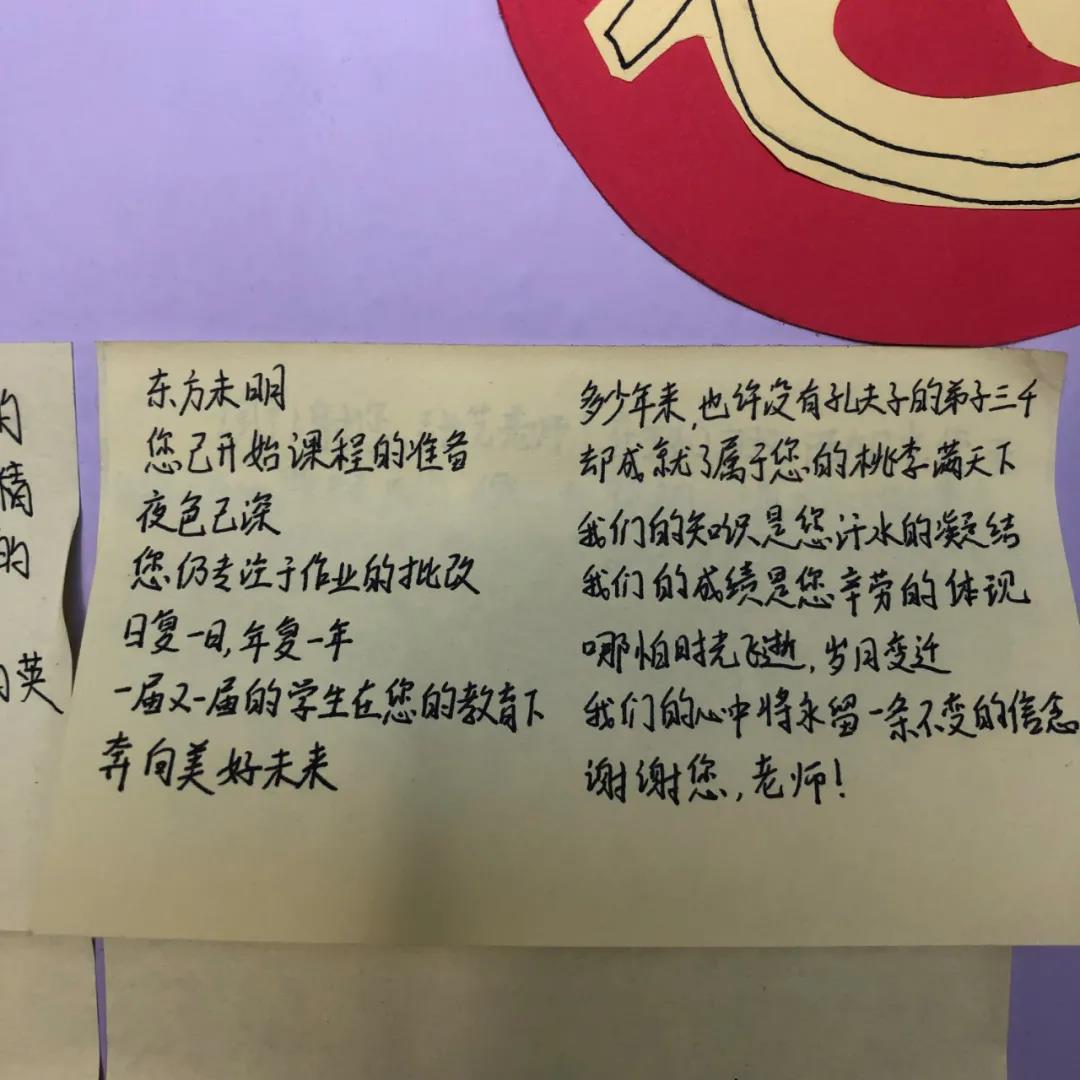 的
精
的
英
东方未明
您已开始课程的准备
夜色已深
您仍专注于作业的批改
日复一日,年复一年
一届又一届的学生在您的教育下
奔向美好未来
多少年来,也许没有孔夫子的弟子三千
却成就了属于您的桃李满天下
我们的知识是您汗水的凝结
我们的成绩是您辛劳的体现
哪怕时光飞逝,岁月变迁
我们的心中将永留一条不变的信念
谢谢您,老师!